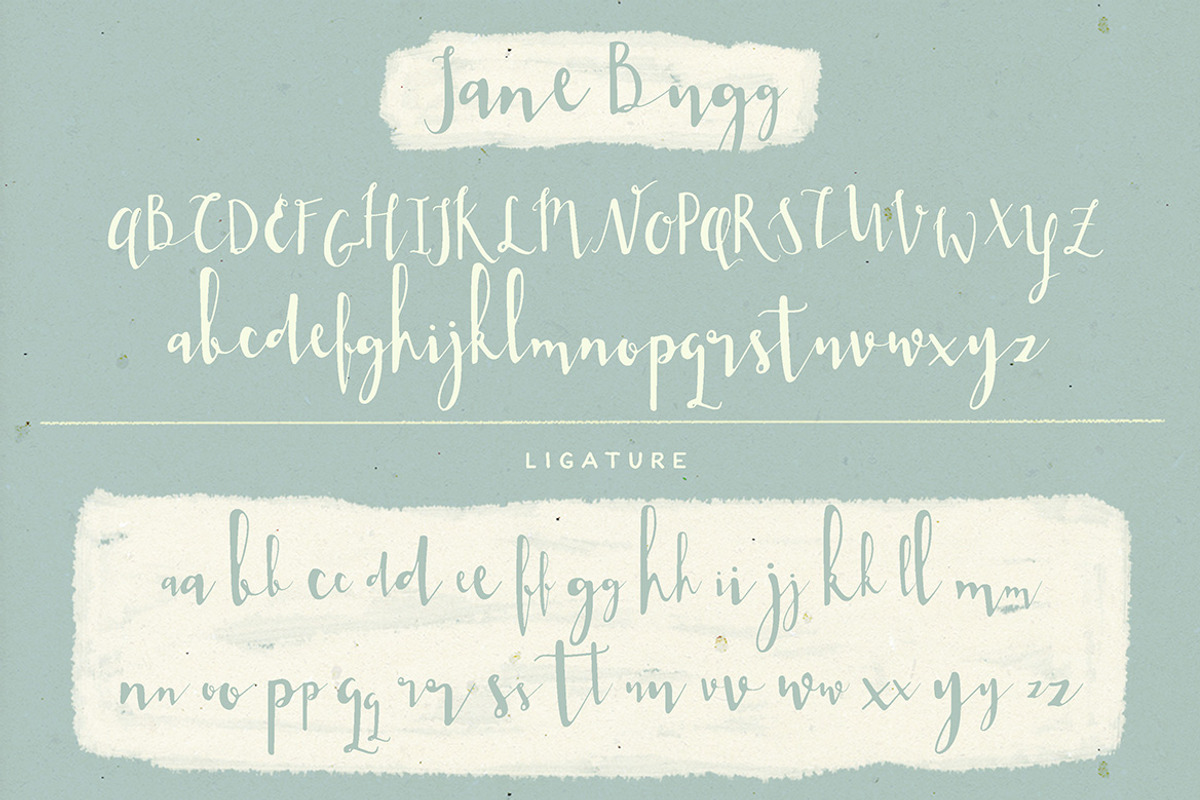 Jane Bugg
ABCDEFGHIJKLMNOPQRSTUVWXYZ
abcdefghijklmnopqrstuvwxyz
LIGATURE
aa bb cc dd ee ff gg hh ii jj kk ll mm
nn oo pp qq rr ss tt uu vv ww xx yy zz